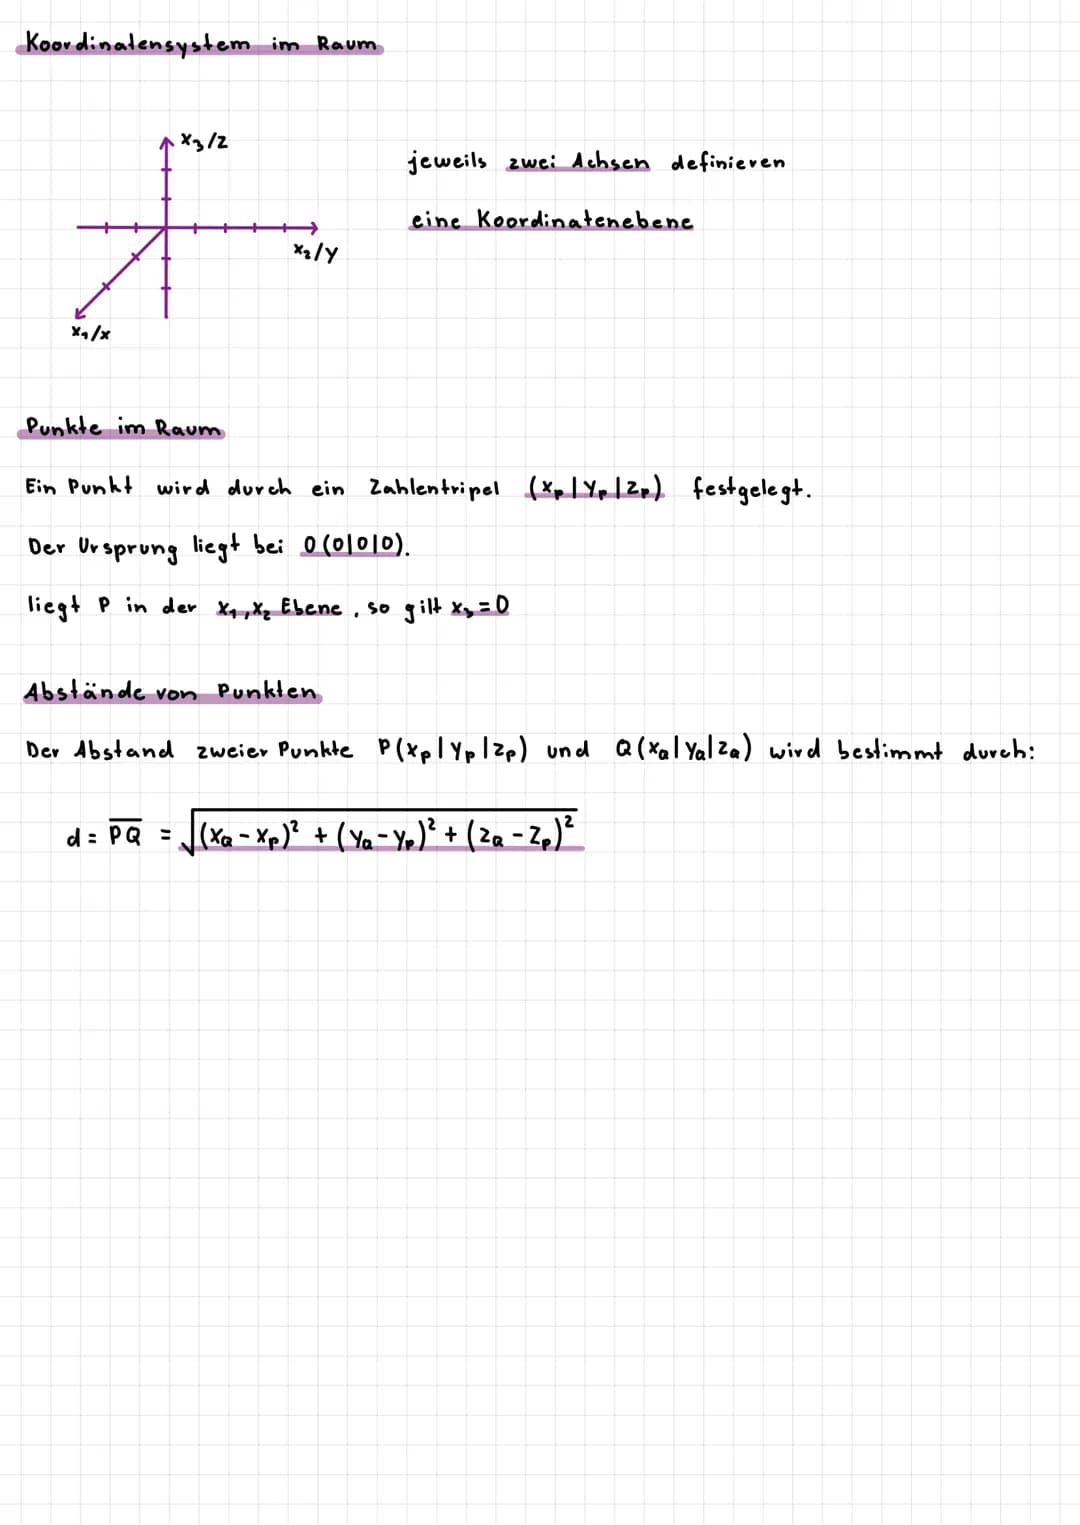 Koordinatensystem im Raum
x₃/z
jeweils zwei Achsen definieren
eine Koordinatenebene
x₂/y
x₁/x
Punkte im Raum
Ein Punkt wird durch ein Zahlentripel (xₚ|yₚ|zₚ) festgelegt.
Der Ursprung liegt bei O(0|0|0).
liegt P in der x₁,x₂ Ebene, so gilt x₃=0
Abstände von Punkten
Der Abstand zweier Punkte P(xₚ|yₚ|zₚ) und Q(x_Q|y_Q|z_Q) wird bestimmt durch:
d = P̅Q̅ = √((x_Q - xₚ)² + (y_Q - yₚ)² + (z_Q - zₚ)²)